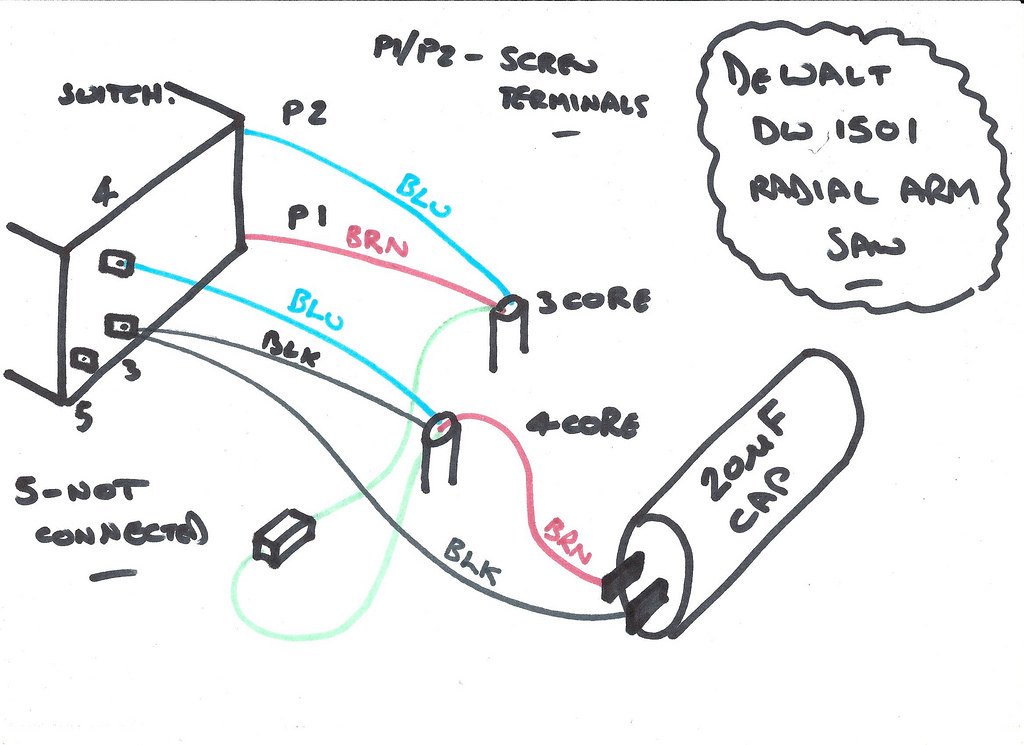 P1/P2 - SCREW
TERMINALS
DEWALT
DW 1501
RADIAL ARM
SAW
SWITCH.
P2
4
BLU
P1
BRN
3 CORE
BLU
BLK
3
5
4 CORE
20µF
CAP
5 - NOT
CONNECTED
BLK
BRN